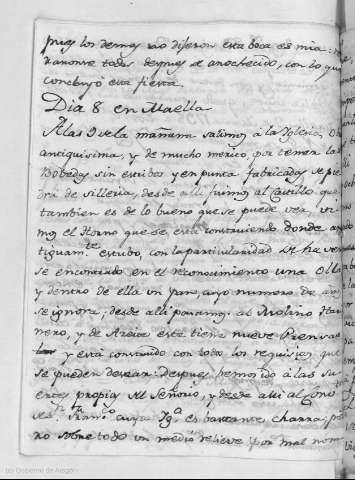 pues los demas no dijeron esta boca es mia:
todos despues de anochecido, con lo que
concluyó esta fiesta.
Dia 8 en Maella
A las 9 de la mañana salimos á la Iglesia, 
antiquisima, y de mucho merito, por tener la
Bobedas sin estribos y en punta fabricadas de pie
dra de silleria, desde alli fuimos al Castillo que
tambien es de lo bueno que se puede ver, vi
mos el Horno que se está construiendo donde an
tiguamte. estubo, con la particularidad de haver
se encontrado en el reconocimiento una Olla
y dentro de ella un pan, cuyo numero de años
se ignora; desde alli pasamos al Molino Hari
nero, y de Aceite este tiene nueve Prensas
y está construido con todos los requisitos que
se pueden desear: Despues bamos á las
propias del Señorio, y desde alli al Conv
Franco. cuya Yga. es bastante charra, pe
ro sobre todo un medio relieve por mal nom
(c) Gobierno de Aragón